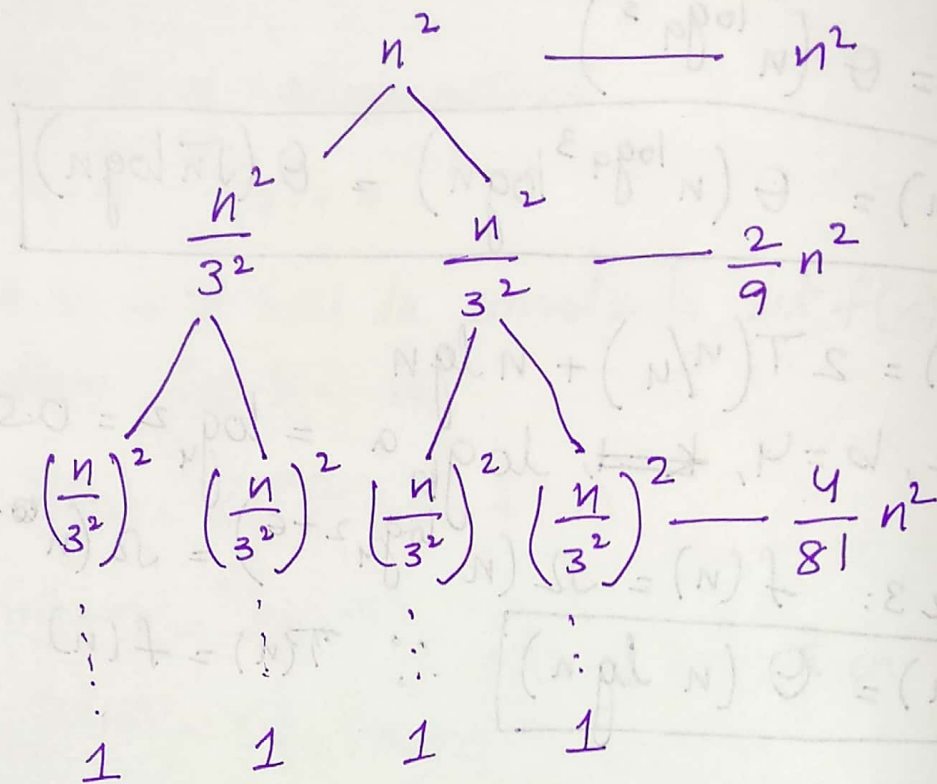 n² — n²
n²/3² n²/3² — 2/9 n²
(n/3²)² (n/3²)² (n/3²)² (n/3²)² — 4/81 n²
⋮ ⋮ ⋮ ⋮
1 1 1 1